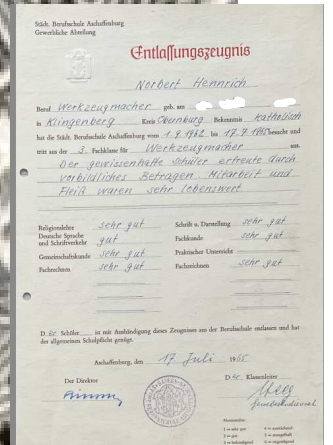 Städt. Berufsschule Aschaffenburg
Gewerbliche Abteilung
Entlassungszeugnis
Norbert Hennrich
Beruf Werkzeugmacher geb. am
in Klingenberg Kreis Obenburg Bekenntnis katholisch
hat die Städt. Berufsschule Aschaffenburg vom 1.9.1962 bis 17.7.1965 besucht und
tritt aus der 3. Fachklasse für Werkzeugmacher aus.
Der gewissenhafte Schüler erfreute durch
vorbildliches Betragen. Mitarbeit und
Fleiß waren sehr lobenswert
Religionslehre sehr gut Schrift u. Darstellung sehr gut
Deutsche Sprache
und Schriftverkehr gut Fachkunde sehr gut
Gemeinschaftskunde sehr gut Praktischer Unterricht
Fachrechnen sehr gut Fachzeichnen sehr gut
D er Schüler ist mit Aushändigung dieses Zeugnisses aus der Berufsschule entlassen und hat
der allgemeinen Schulpflicht genügt.
Aschaffenburg, den 17. Juli 1965
Der Direktor D er Klassenleiter
Notenstufen:
1 = sehr gut 4 = ausreichend
2 = gut 5 = mangelhaft
3 = befriedigend 6 = ungenügend